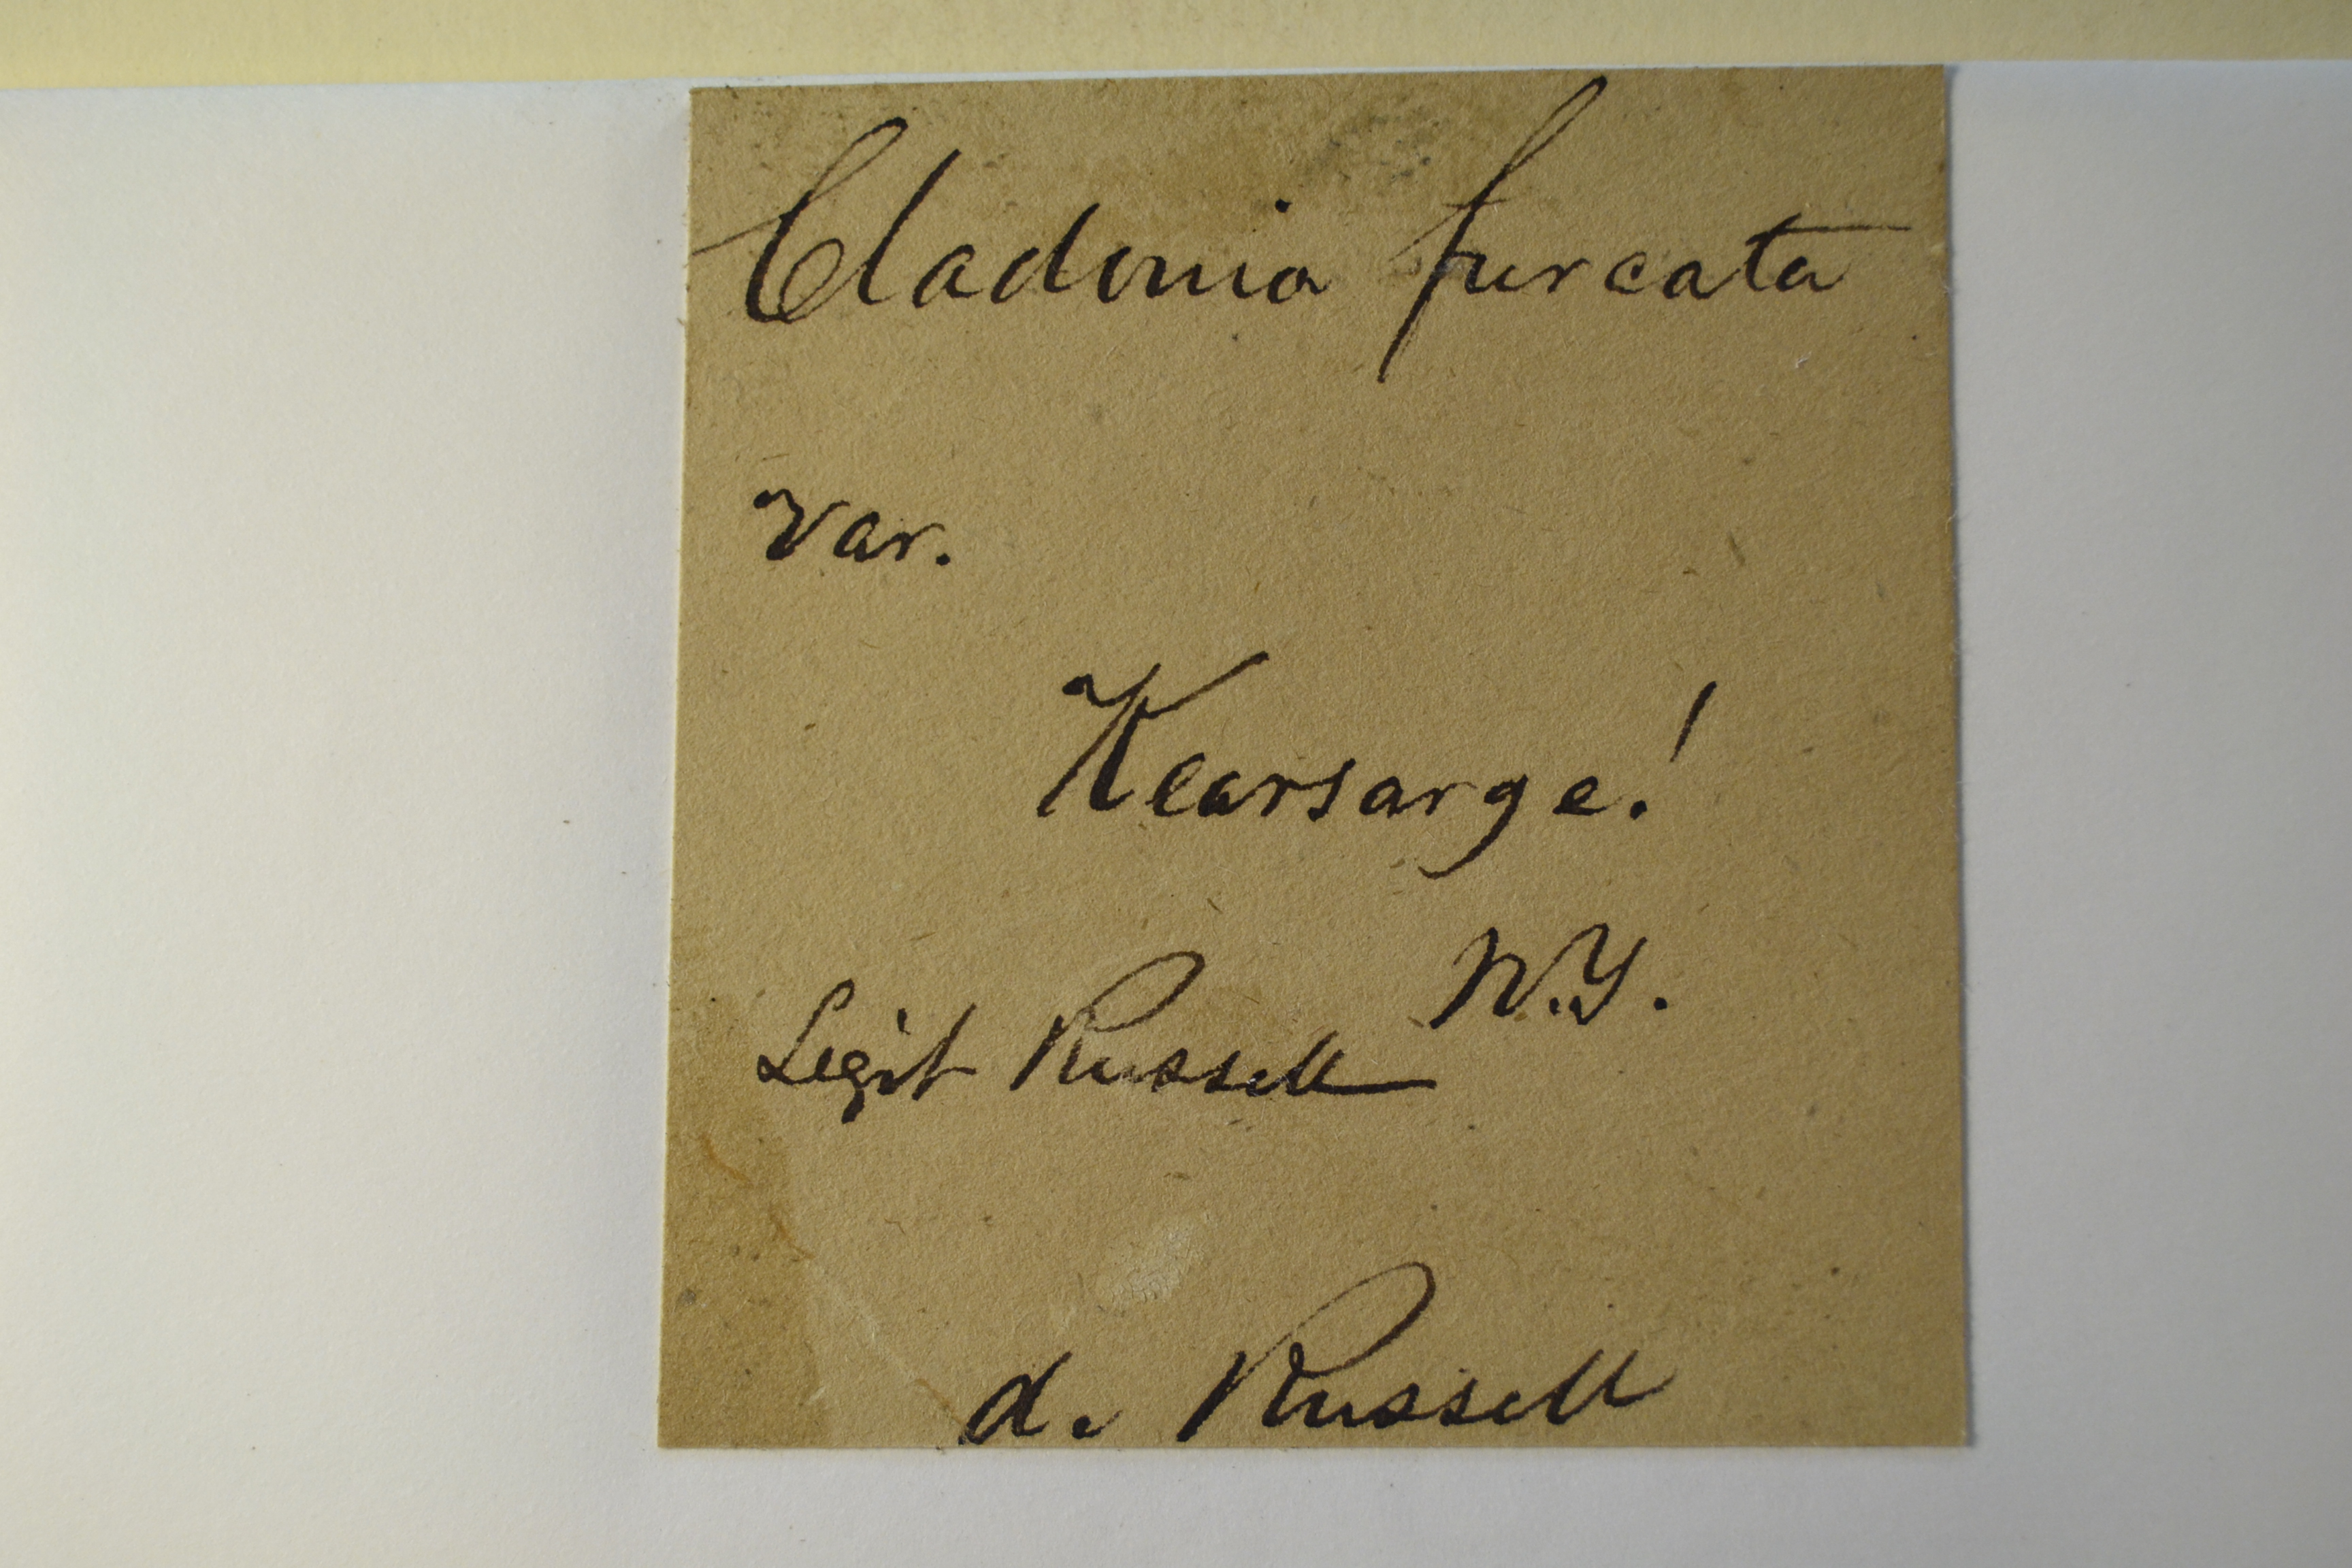 Cladonia furcata
var.
Kearsarge!
N.Y.
Legit Russell
d. Russell